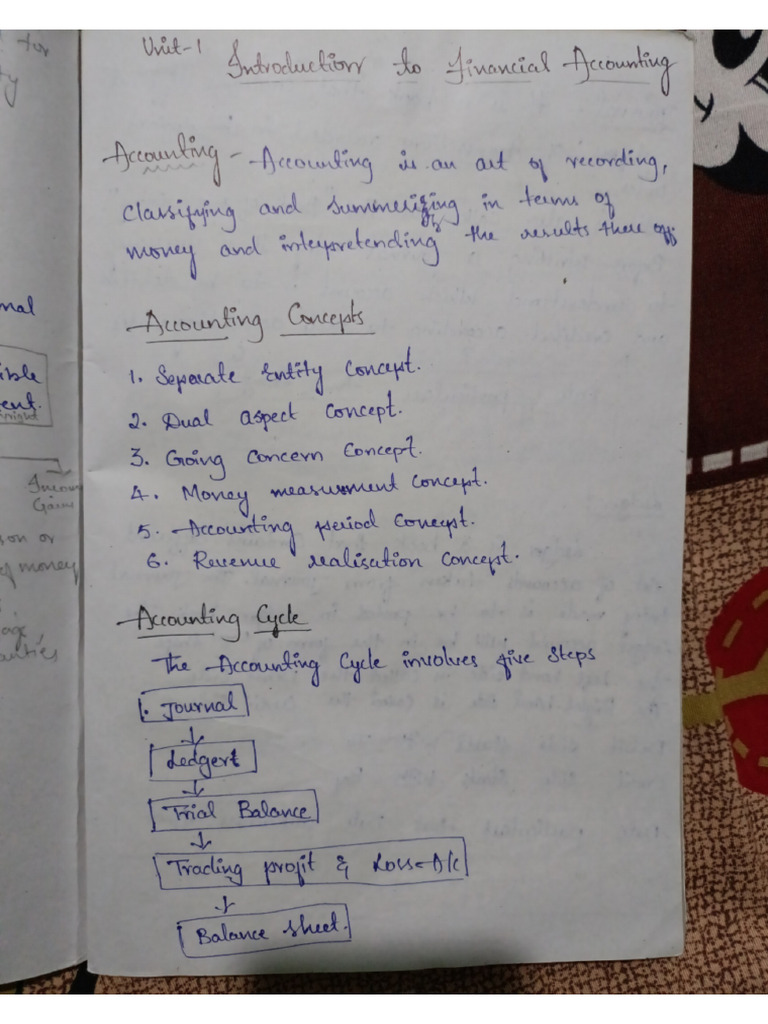 nal
ible
ent.
Income
Gains
son or
of money
Unit-1 Introduction to Financial Accounting
Accounting - Accounting is an art of recording,
classifying and summerizing in terms of
money and interpretending the results there off.
Accounting Concepts
1. Separate Entity Concept.
2. Dual aspect concept.
3. Going concern concept.
4. Money measurment concept.
5. Accounting period concept.
6. Revenue realisation concept.
Accounting Cycle
The Accounting Cycle involves five steps
1. Journal
Ledgert
Trial Balance
Trading profit & Loss A/c
Balance sheet.